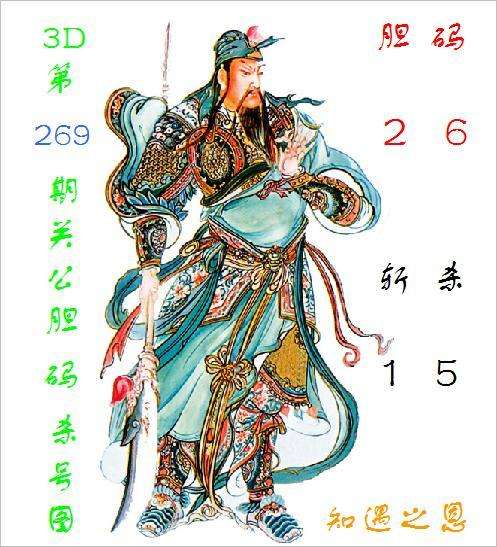 3D
第
269
期
关
公
胆
码
杀
号
图
胆 码
2 6
斩 杀
1 5
知遇之恩